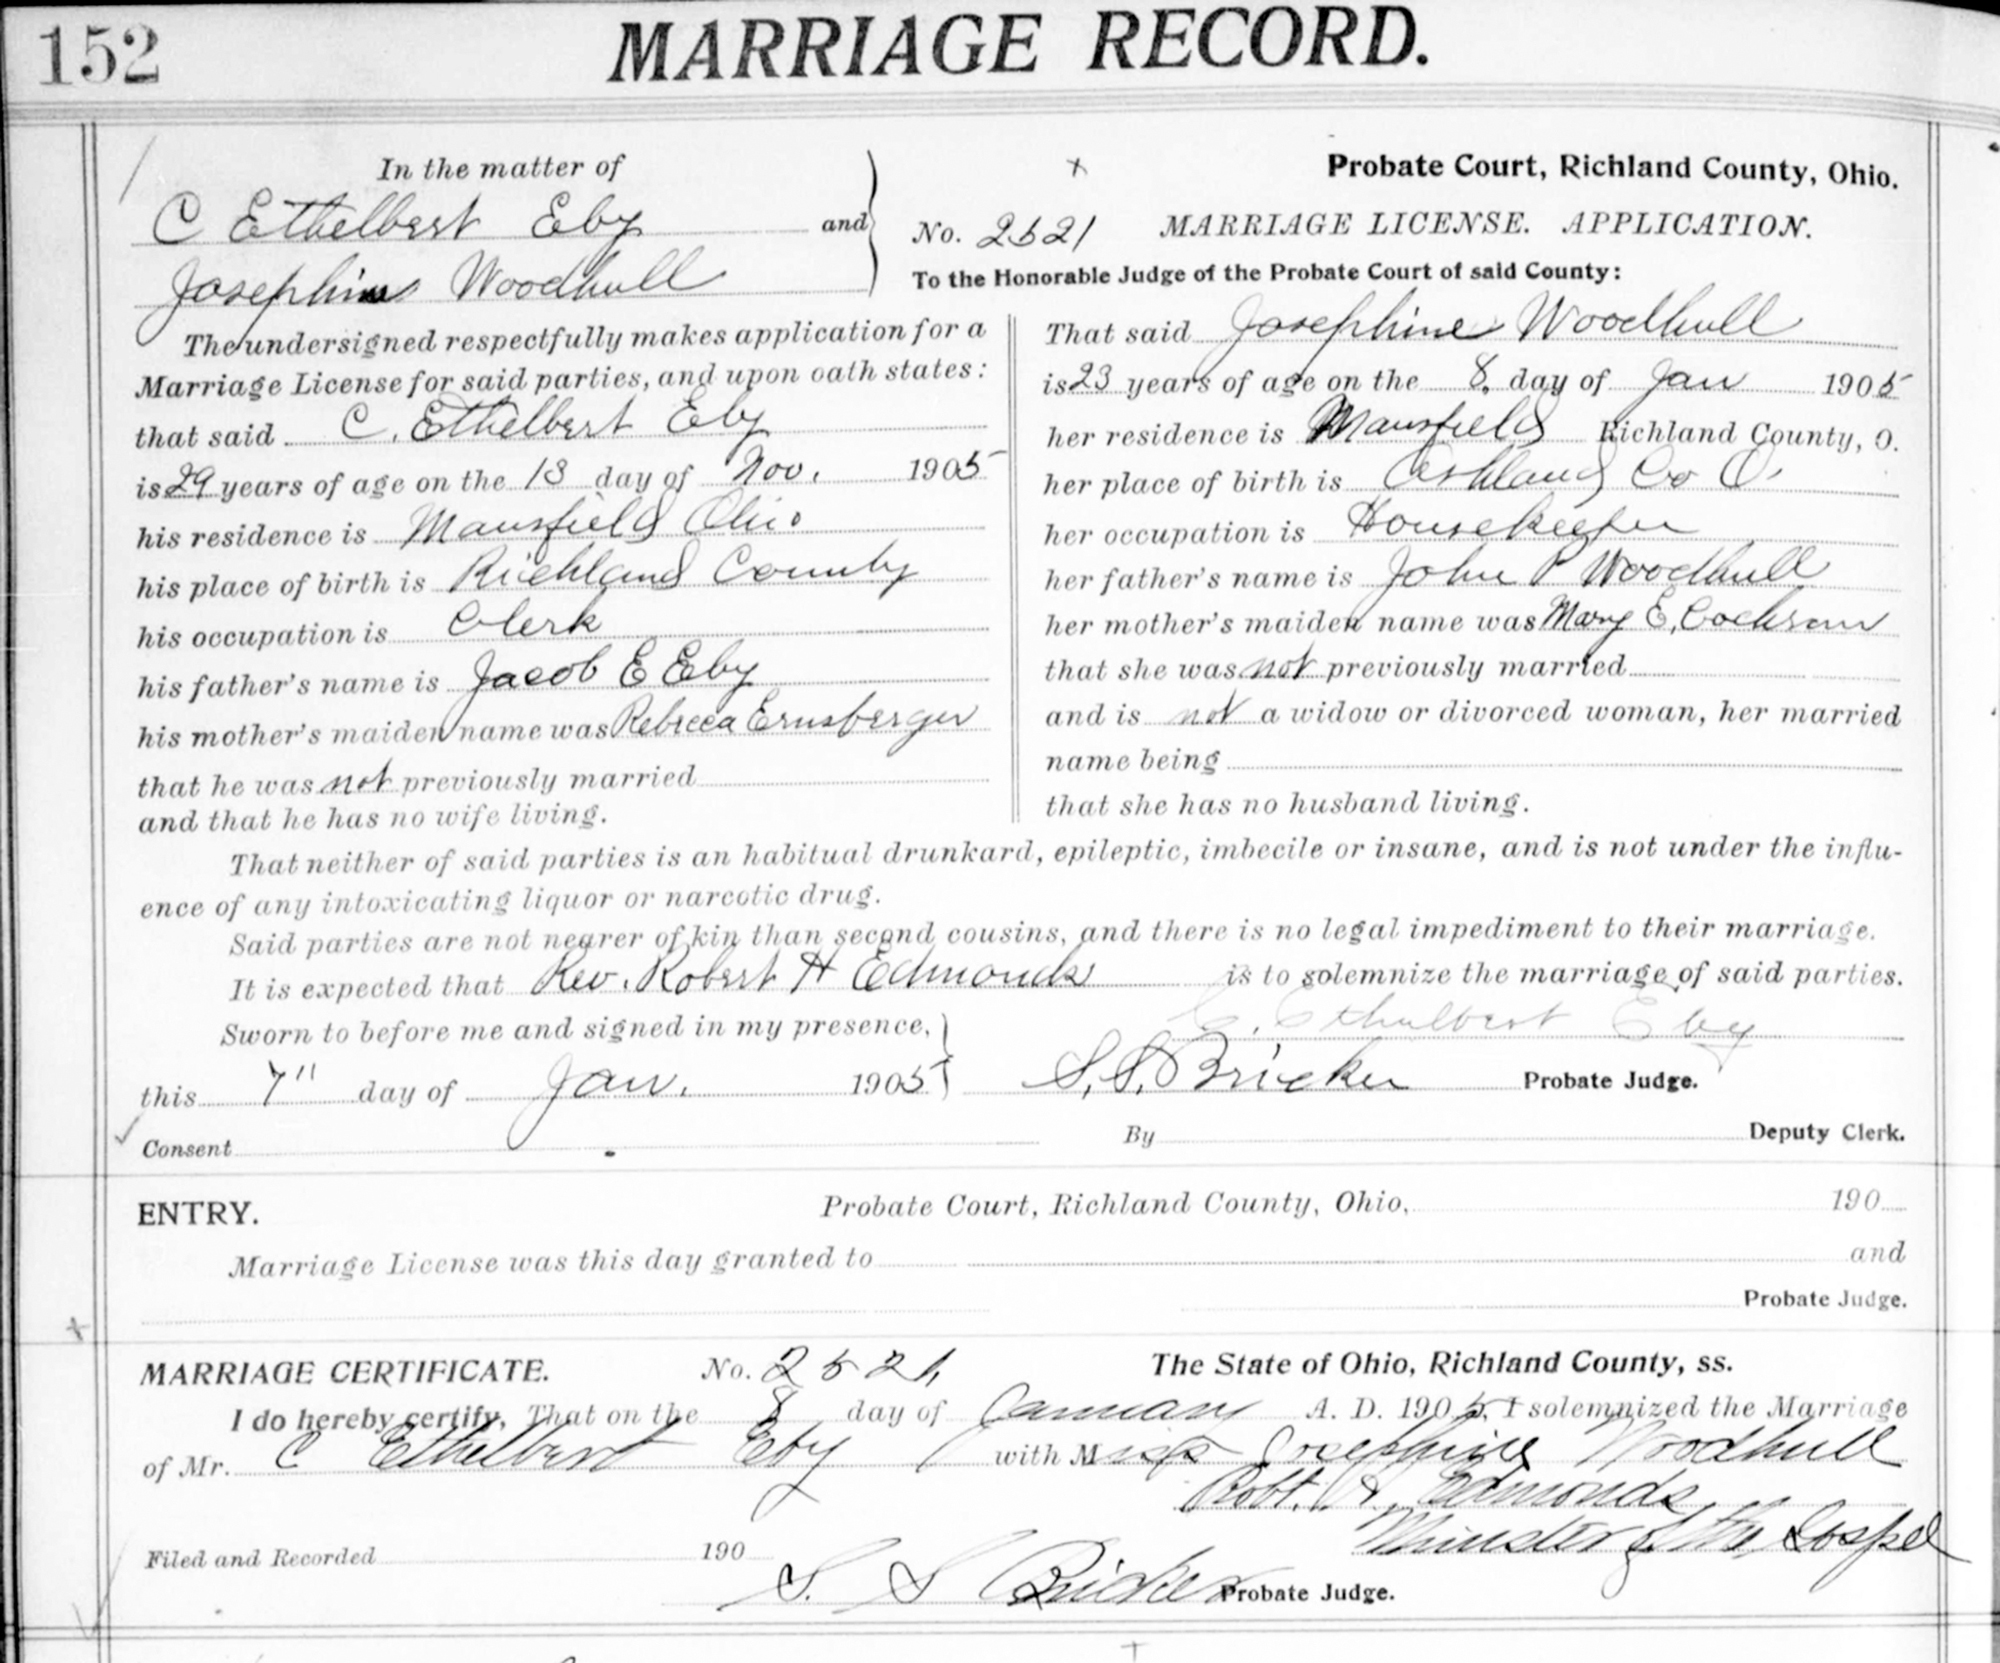 152
MARRIAGE RECORD.
In the matter of
C Ethelbert Eby and
Josephine Woodhull
Probate Court, Richland County, Ohio.
No. 2521 MARRIAGE LICENSE. APPLICATION.
To the Honorable Judge of the Probate Court of said County:
The undersigned respectfully makes application for a
Marriage License for said parties, and upon oath states:
that said C. Ethelbert Eby
is 29 years of age on the 13 day of Nov. 1905
his residence is Mansfield Ohio
his place of birth is Richland County
his occupation is Clerk
his father's name is Jacob E Eby
his mother's maiden name was Rebecca Ernsberger
that he was not previously married
and that he has no wife living.
That said Josephine Woodhull
is 23 years of age on the 8. day of Jan 1905
her residence is Mansfield Richland County, O.
her place of birth is Ashland Co O.
her occupation is Housekeeper
her father's name is John P Woodhull
her mother's maiden name was Mary E. Cochran
that she was not previously married
and is not a widow or divorced woman, her married
name being
that she has no husband living.
That neither of said parties is an habitual drunkard, epileptic, imbecile or insane, and is not under the influ-
ence of any intoxicating liquor or narcotic drug.
Said parties are not nearer of kin than second cousins, and there is no legal impediment to their marriage.
It is expected that Rev. Robert H Edmonds is to solemnize the marriage of said parties.
C. Ethelbert Eby
Sworn to before me and signed in my presence,
this 7" day of Jan. 1905 S. S. Bricker Probate Judge.
Consent By Deputy Clerk.
ENTRY. Probate Court, Richland County, Ohio, 190
Marriage License was this day granted to and
Probate Judge.
MARRIAGE CERTIFICATE. No. 2521, The State of Ohio, Richland County, ss.
I do hereby certify, That on the 8 day of January A. D. 1905, I solemnized the Marriage
of Mr. C Ethelbert Eby with Miss Josephine Woodhull
Robt. H. Edmonds
Minister of the Gospel
Filed and Recorded 190
S. S. Bricker Probate Judge.